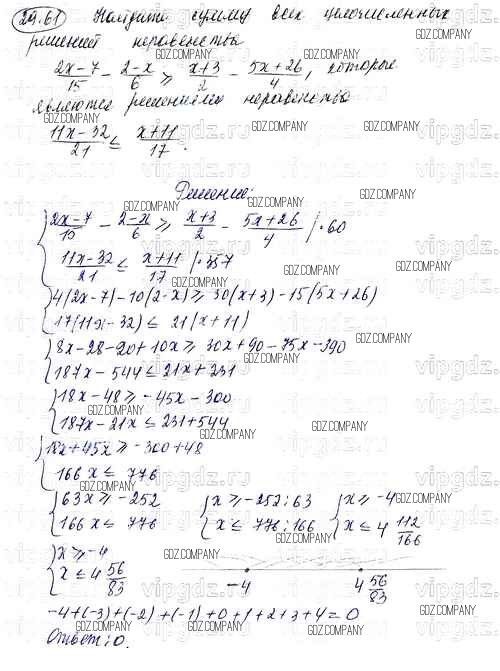 24.61 Найдите сумму всех целочисленных
решений неравенства
(2x-7)/15 - (2-x)/6 ≥ (x+3)/2 - (5x+26)/4, которые
являются решениями неравенства
(11x-32)/21 ≤ (x+11)/17.
Решение:
(2x-7)/15 - (2-x)/6 ≥ (x+3)/2 - (5x+26)/4 /·60
(11x-32)/21 ≤ (x+11)/17 /·357
4(2x-7)-10(2-x) ≥ 30(x+3)-15(5x+26)
17(11x-32) ≤ 21(x+11)
8x-28-20+10x ≥ 30x+90-75x-390
187x-544 ≤ 21x+231
18x-48 ≥ -45x-300
187x-21x ≤ 231+544
18x+45x ≥ -300+48
166x ≤ 776
63x ≥ -252 x ≥ -252:63 x ≥ -4
166x ≤ 776 x ≤ 776:166 x ≤ 4 112/166
x ≥ -4
x ≤ 4 56/83 -4 4 56/83
-4+(-3)+(-2)+(-1)+0+1+2+3+4=0
Ответ: 0.
GDZ.COMPANY
vipgdz.ru